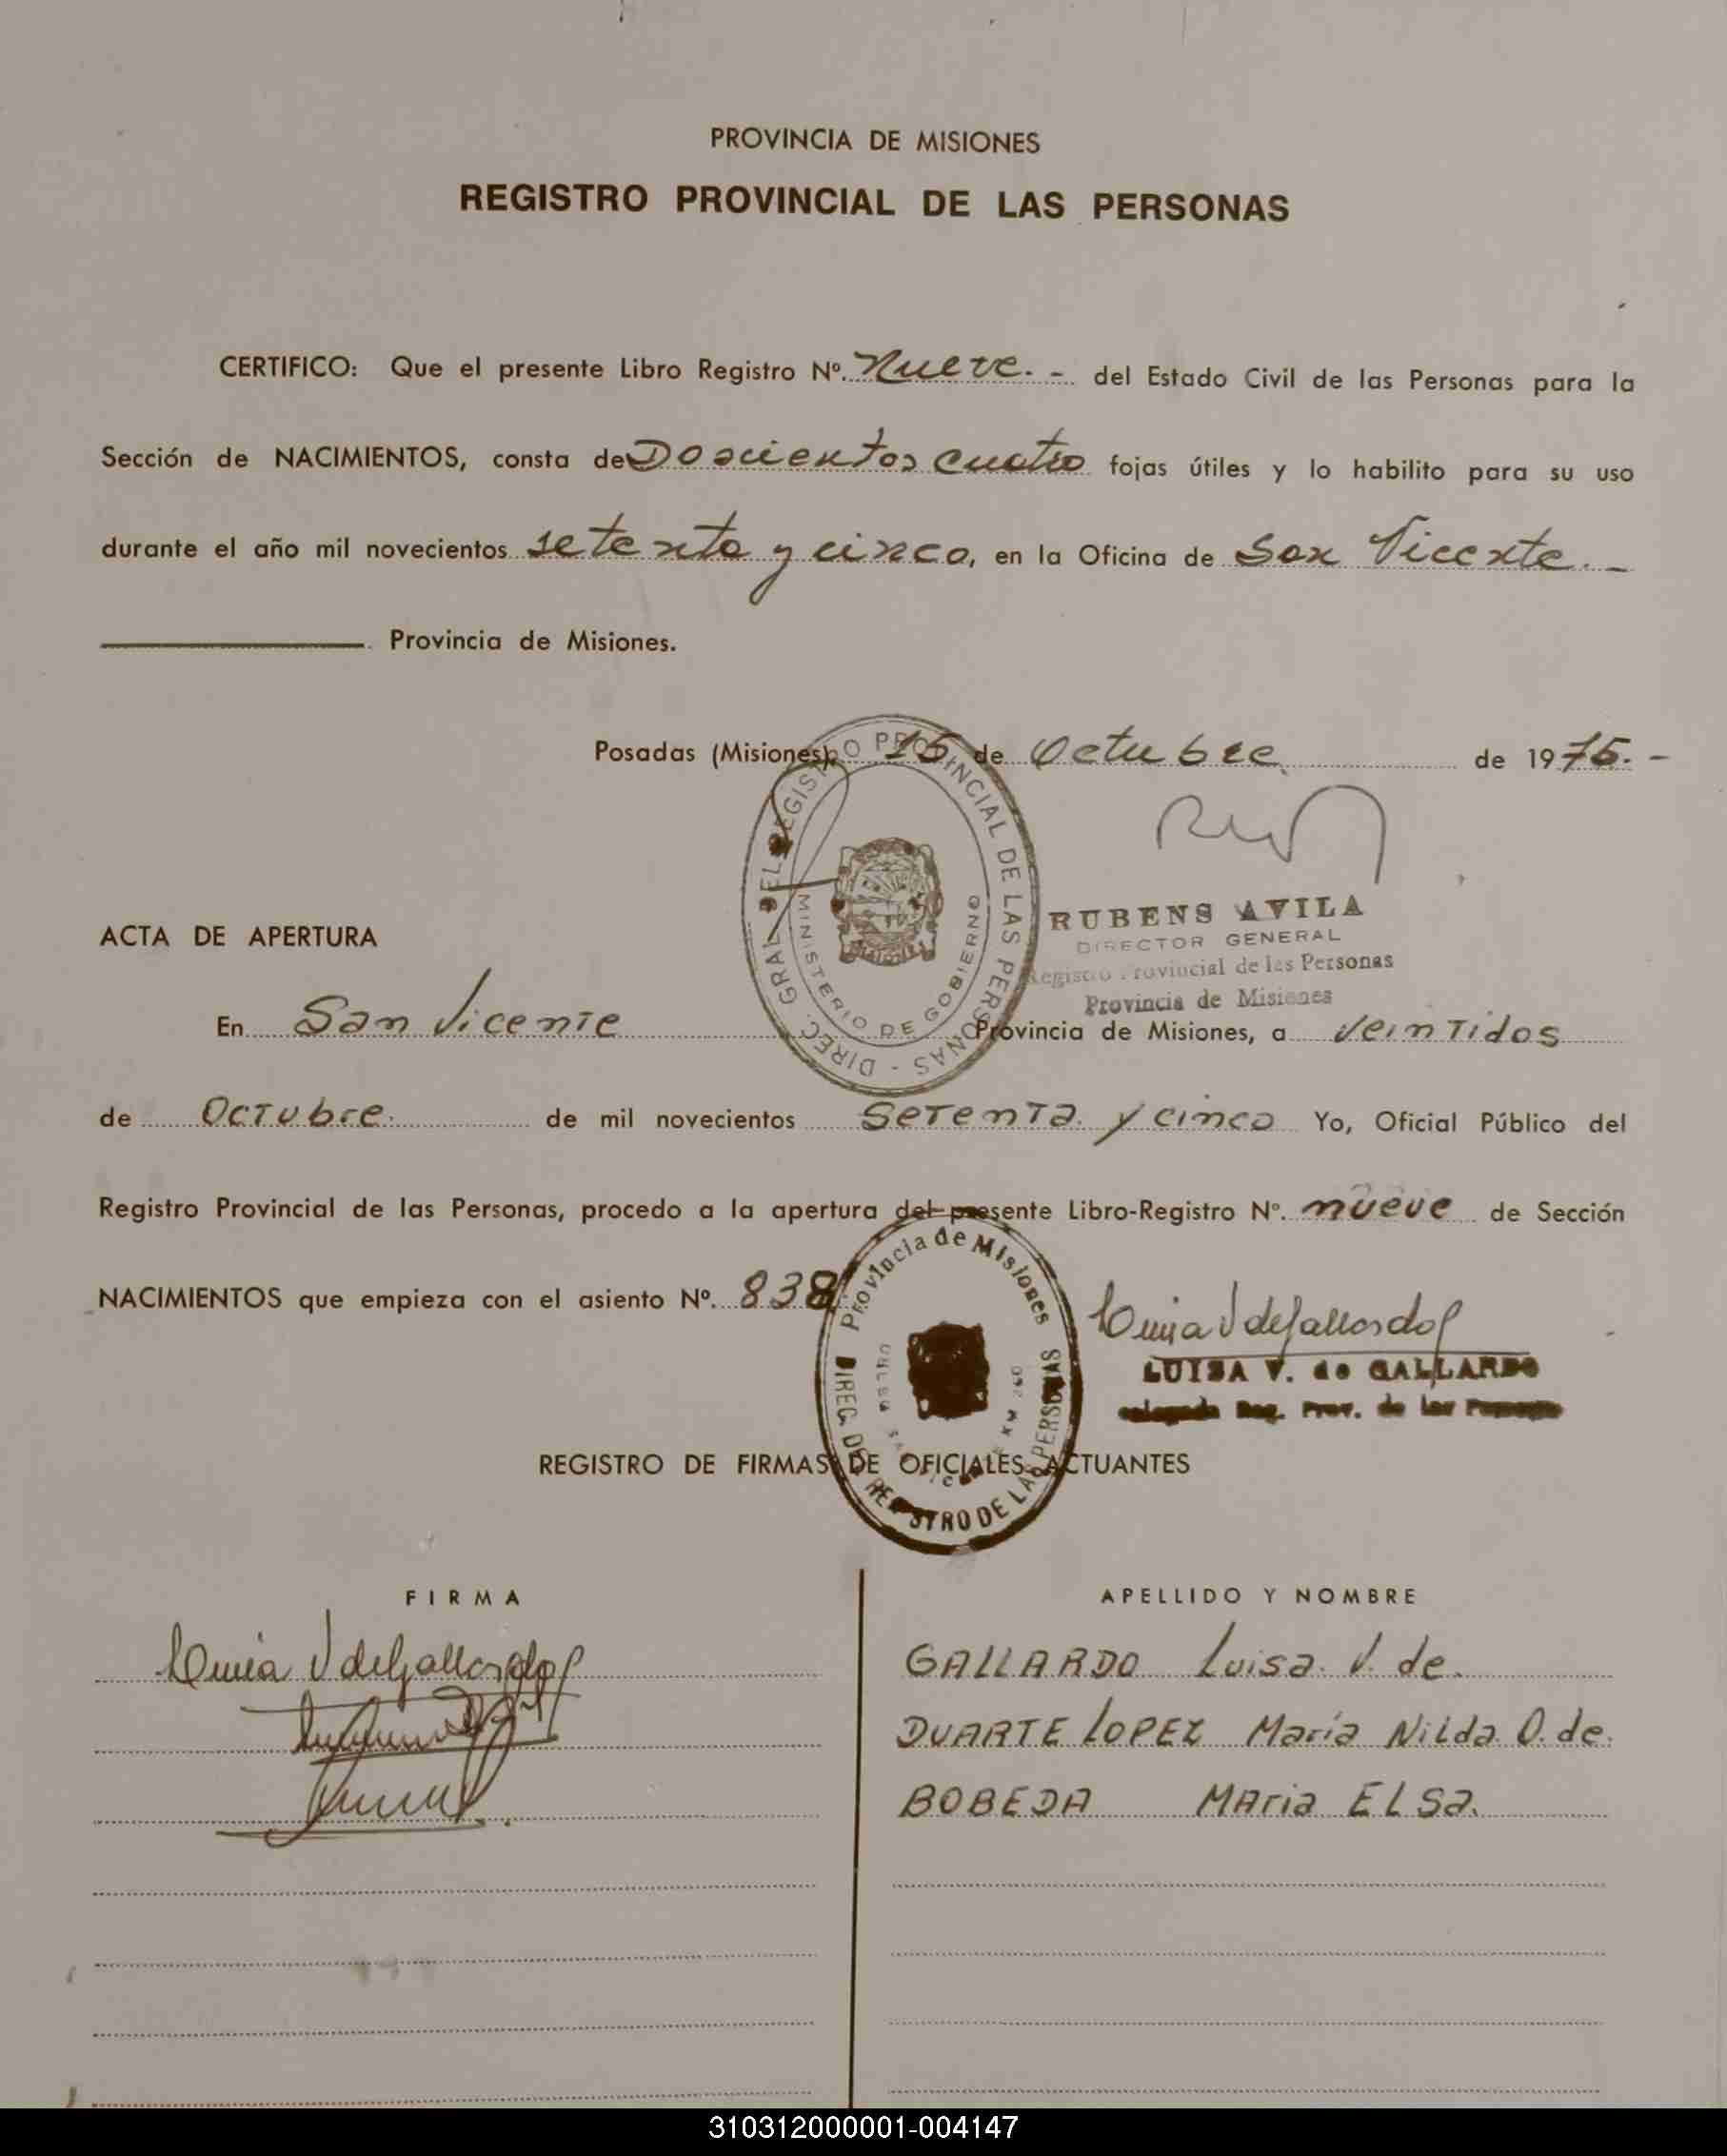 PROVINCIA DE MISIONES
REGISTRO PROVINCIAL DE LAS PERSONAS
CERTIFICO: Que el presente Libro Registro Nº. Nueve. - del Estado Civil de las Personas para la
Sección de NACIMIENTOS, consta de Doscientos cuatro fojas útiles y lo habilito para su uso
durante el año mil novecientos setenta y cinco, en la Oficina de San Vicente. -
Provincia de Misiones.
Posadas (Misiones), 15 de Octubre de 1975. -
DIREC. GRAL. DEL REGISTRO PROVINCIAL DE LAS PERSONAS -
MINISTERIO DE GOBIERNO
RUBENS AVILA
DIRECTOR GENERAL
Registro Provincial de las Personas
Provincia de Misiones
ACTA DE APERTURA
En San Vicente Provincia de Misiones, a veintidos
de Octubre. de mil novecientos Setenta y cinco Yo, Oficial Público del
Registro Provincial de las Personas, procedo a la apertura del presente Libro-Registro Nº. nueve de Sección
NACIMIENTOS que empieza con el asiento Nº. 838
Provincia de Misiones
DIREC. DEL REGISTRO DE LAS PERSONAS
Luisa V de Gallardo
LUISA V. de GALLARDO
Reg. Prov. de las Personas
REGISTRO DE FIRMAS DE OFICIALES ACTUANTES
FIRMA APELLIDO Y NOMBRE
Luisa V de Gallardo GALLARDO Luisa. V. de.
DUARTE LOPEZ María Nilda O. de.
BOBEDA Maria ELSa.
310312000001-004147